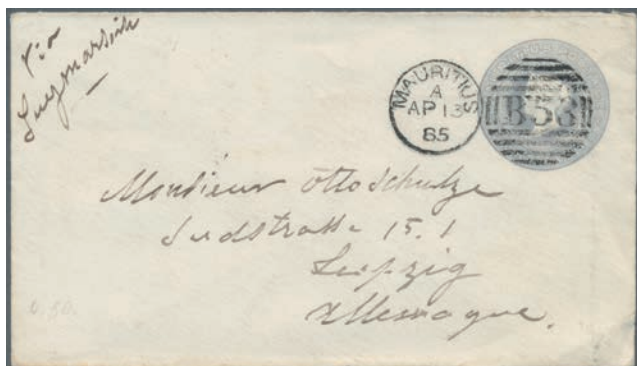 via
MAURITIUS
A
AP 13
85
B53
Monsieur Otto Schulze
Sudstrasse 15.1
Leipzig
Allemagne.